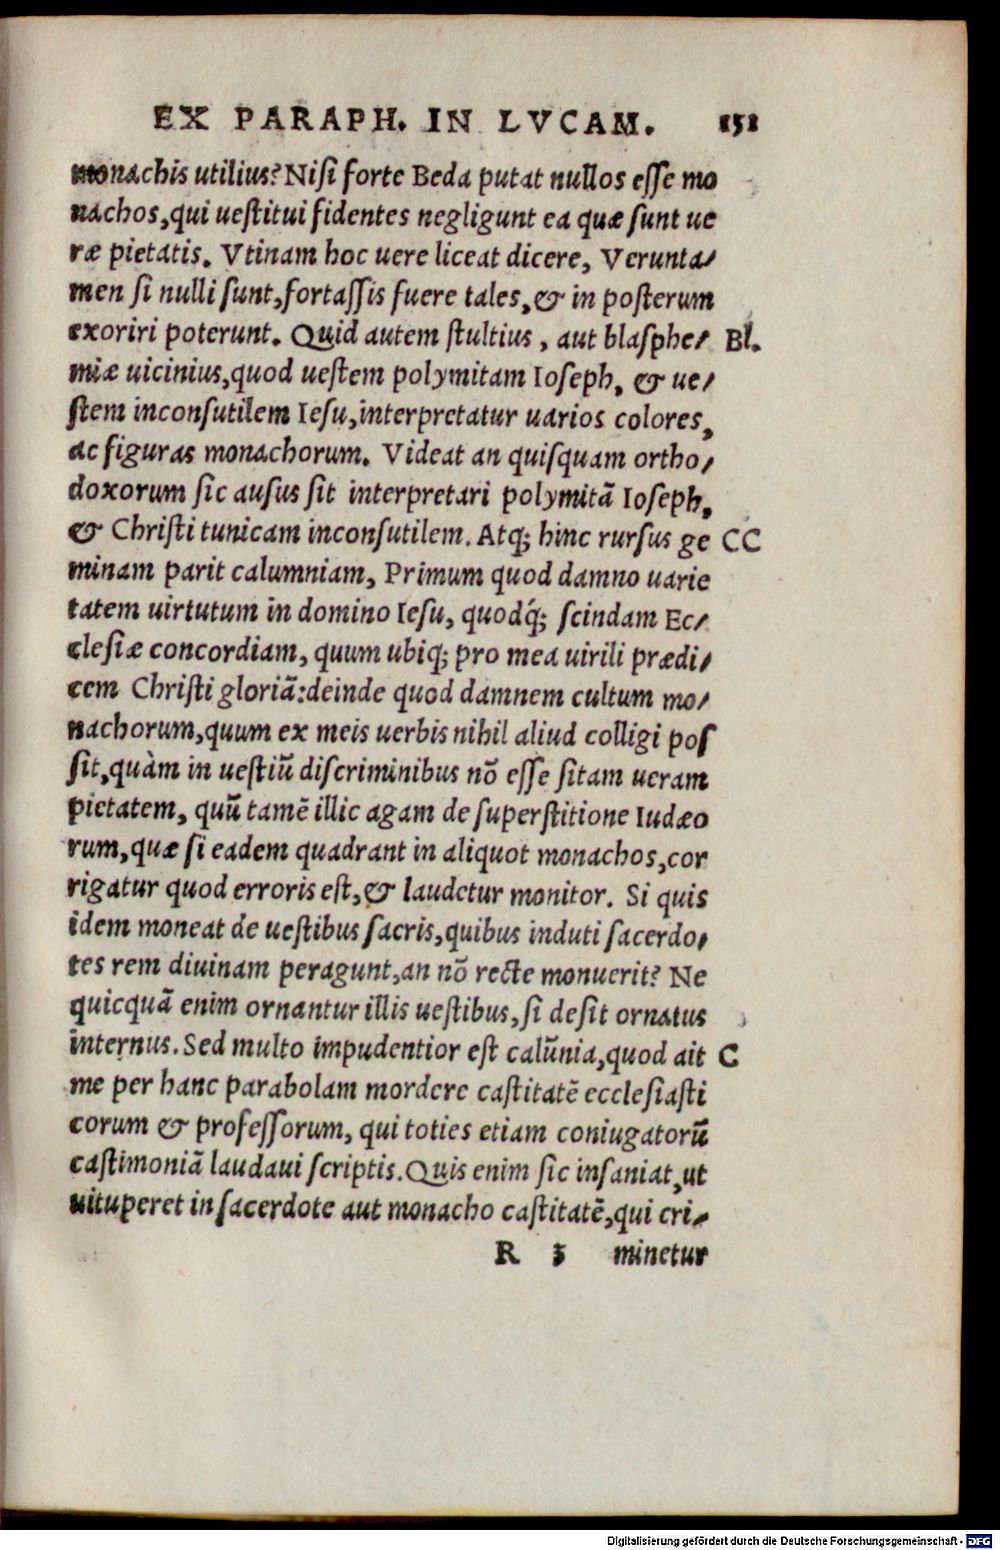 EX PARAPH. IN LVCAM. 151
monachis utilius? Nisi forte Beda putat nullos esse mo
nachos, qui uestitui fidentes negligunt ea quæ sunt ue
ræ pietatis. Vtinam hoc uere liceat dicere, Verunta/
men si nulli sunt, fortassis fuere tales, & in posterum
exoriri poterunt. Quid autem stultius, aut blasphe/ Bl.
miæ uicinius, quod uestem polymitam Ioseph, & ue/
stem inconsutilem Iesu, interpretatur uarios colores,
ac figuras monachorum. Videat an quisquam ortho/
doxorum sic ausus sit interpretari polymitã Ioseph,
& Christi tunicam inconsutilem. Atq; hinc rursus ge CC
minam parit calumniam, Primum quod damno uarie
tatem uirtutum in domino Iesu, quodq́; scindam Ec/
clesiæ concordiam, quum ubiq; pro mea uirili prædi/
cem Christi gloriã: deinde quod damnem cultum mo/
nachorum, quum ex meis uerbis nihil aliud colligi pos
sit, quàm in uestiũ discriminibus nõ esse sitam ueram
pietatem, quũ tamẽ illic agam de superstitione Iudæo
rum, quæ si eadem quadrant in aliquot monachos, cor
rigatur quod erroris est, & laudetur monitor. Si quis
idem moneat de uestibus sacris, quibus induti sacerdo/
tes rem diuinam peragunt, an nõ recte monuerit? Ne
quicquã enim ornantur illis uestibus, si desit ornatus
internus. Sed multo impudentior est calũnia, quod ait C
me per hanc parabolam mordere castitatẽ ecclesiasti
corum & professorum, qui toties etiam coniugatorũ
castimoniã laudaui scriptis. Quis enim sic insaniat, ut
uituperet in sacerdote aut monacho castitatẽ, qui cri/
R 3 minetur
Digitalisierung gefördert durch die Deutsche Forschungsgemeinschaft - DFG